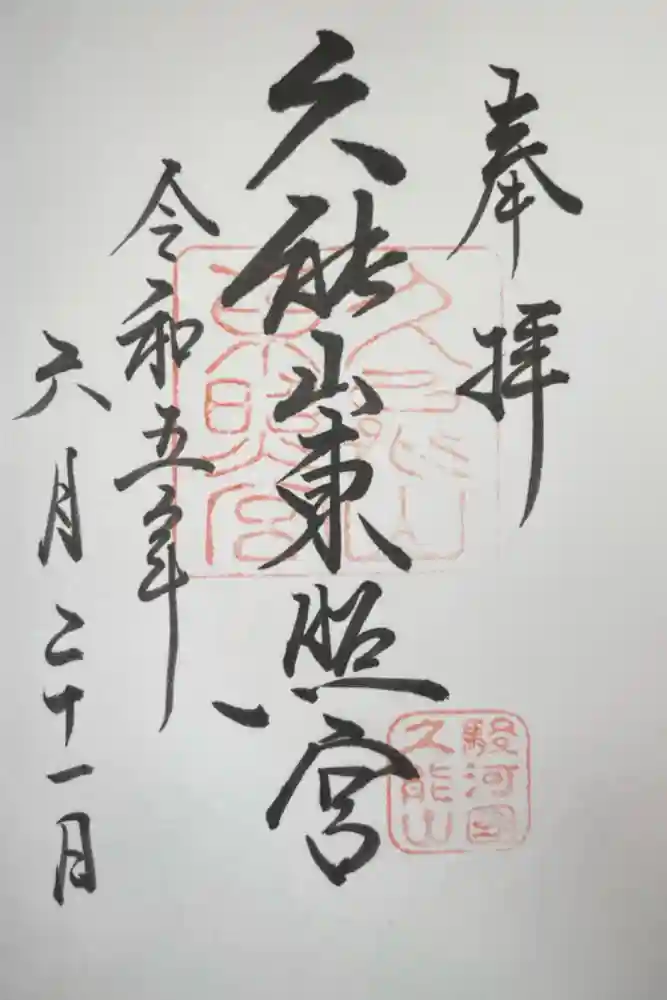 奉拝
久能山東照宮
令和五年
六月二十一日
久能山
東照宮
駿河国
久能山